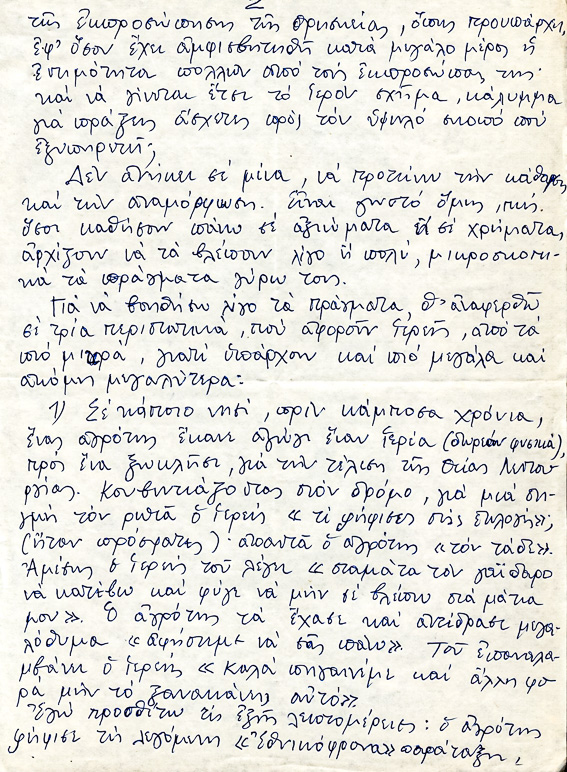 2
τῆς ἐκπροσώπησης τῆς θρησκείας, ὅπως προϋπάρχει,
ἐφ' ὅσον ἔχει ἀμφισβητηθῆ κατά μεγάλο μέρος ἡ
ἐντιμότητα πολλῶν ἀπό τούς ἐκπροσώπους της
καί νά γίνεται ἔτσι τό ἱερόν σχῆμα, κάλυμμα
γιά πράξεις ἄσχετες πρός τόν ὑψηλό σκοπό πού
ἐξυπηρετεῖ;
Δέν ἀνήκει σέ μένα, νά προτείνω τήν κάθαρση
καί τήν ἀναμόρφωση. Εἶναι γνωστό ὅμως, πώς
ὅσοι καθήσουν πάνω σέ ἀξιώματα ἤ σέ χρήματα,
ἀρχίζουν νά τά βλέπουν λίγο ἤ πολύ, μικροσκοπι-
κά τά πράγματα γύρω τους.
Γιά νά βοηθήσω λίγο τά πράγματα, θ' ἀναφερθῶ
σέ τρία περιστατικά, πού ἀφοροῦν ἱερεῖς, ἀπό τά
πιό μικρά, γιατί ὑπάρχουν καί πιό μεγάλα καί
ἀκόμη μεγαλύτερα:
1) Σέ κάποιο νησί, πρίν κάμποσα χρόνια,
ἕνας ἀγρότης ἔκανε ἀγώγι ἕναν ἱερέα (δωρεάν φυσικά),
πρός ἕνα ξωκλῆσι, γιά τήν τέλεση τῆς Θείας Λειτου-
ργίας. Κουβεντιάζοντας στόν δρόμο, γιά μιά στι-
γμή τόν ρωτᾶ ὁ ἱερεύς «τί ψήφισες στίς ἐκλογές»;
(ἦταν πρόσφατες) ἀπαντᾶ ὁ ἀγρότης «τόν τάδε».
Ἀμέσως ὁ ἱερεύς τοῦ λέγει «σταμάτα τόν γάϊδαρο
νά κατέβω καί φύγε νά μήν σέ βλέπω στά μάτια
μου». Ὁ ἀγρότης τά ἔχασε καί ἀντέδρασε μεγα-
λόθυμα «ἀφῆστε με νά σᾶς πάω». Τοῦ ἐπαναλα-
μβάνει ὁ ἱερεύς «καλά πηγαίνουμε καί ἄλλη φο-
ρά μήν τό ξανακάνεις αὐτό».
Ἐγώ προσθέτω τίς ἑξῆς λεπτομέρειες: ὁ ἀγρότης
ψήφισε τή λεγόμενη «Ἐθνικόφρονα» παράταξη,